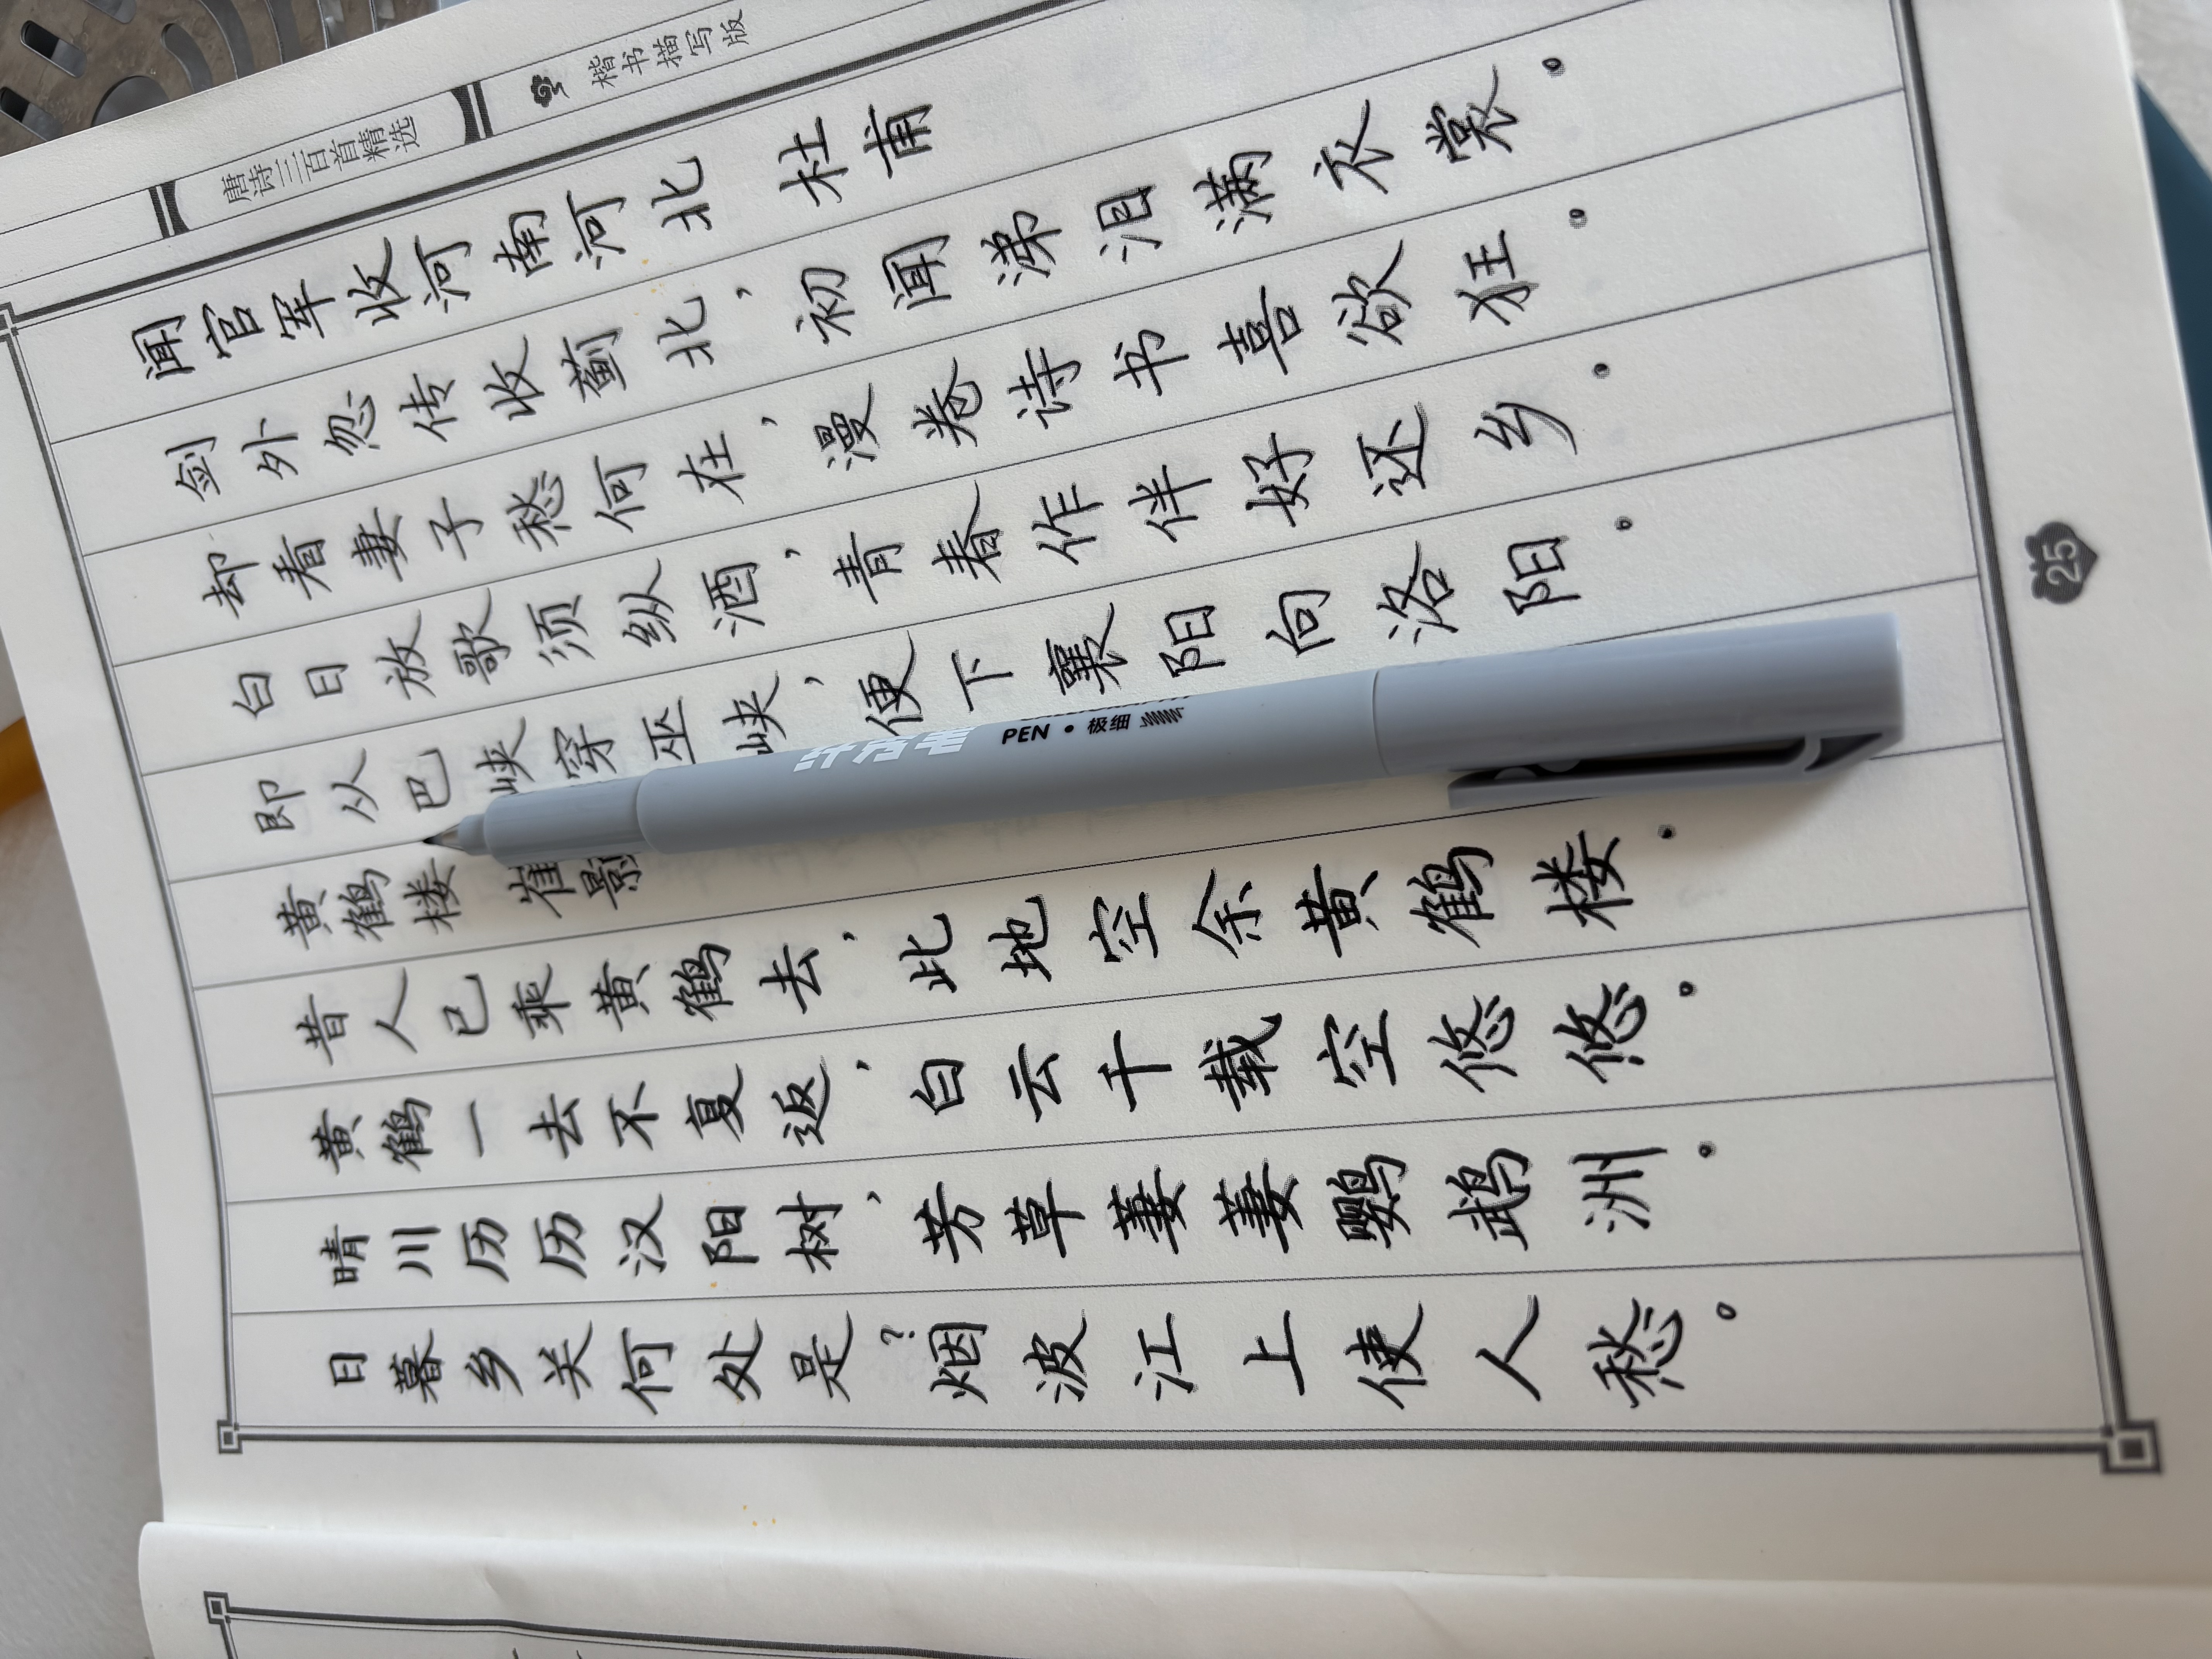 唐诗三百首精选
楷书描写版
闻官军收河南河北 杜甫
剑外忽传收蓟北，初闻涕泪满衣裳。
却看妻子愁何在，漫卷诗书喜欲狂。
白日放歌须纵酒，青春作伴好还乡。
即从巴峡穿巫峡，便下襄阳向洛阳。
黄鹤楼 崔颢
昔人已乘黄鹤去，此地空余黄鹤楼。
黄鹤一去不复返，白云千载空悠悠。
晴川历历汉阳树，芳草萋萋鹦鹉洲。
日暮乡关何处是？烟波江上使人愁。
25
PEN • 极细